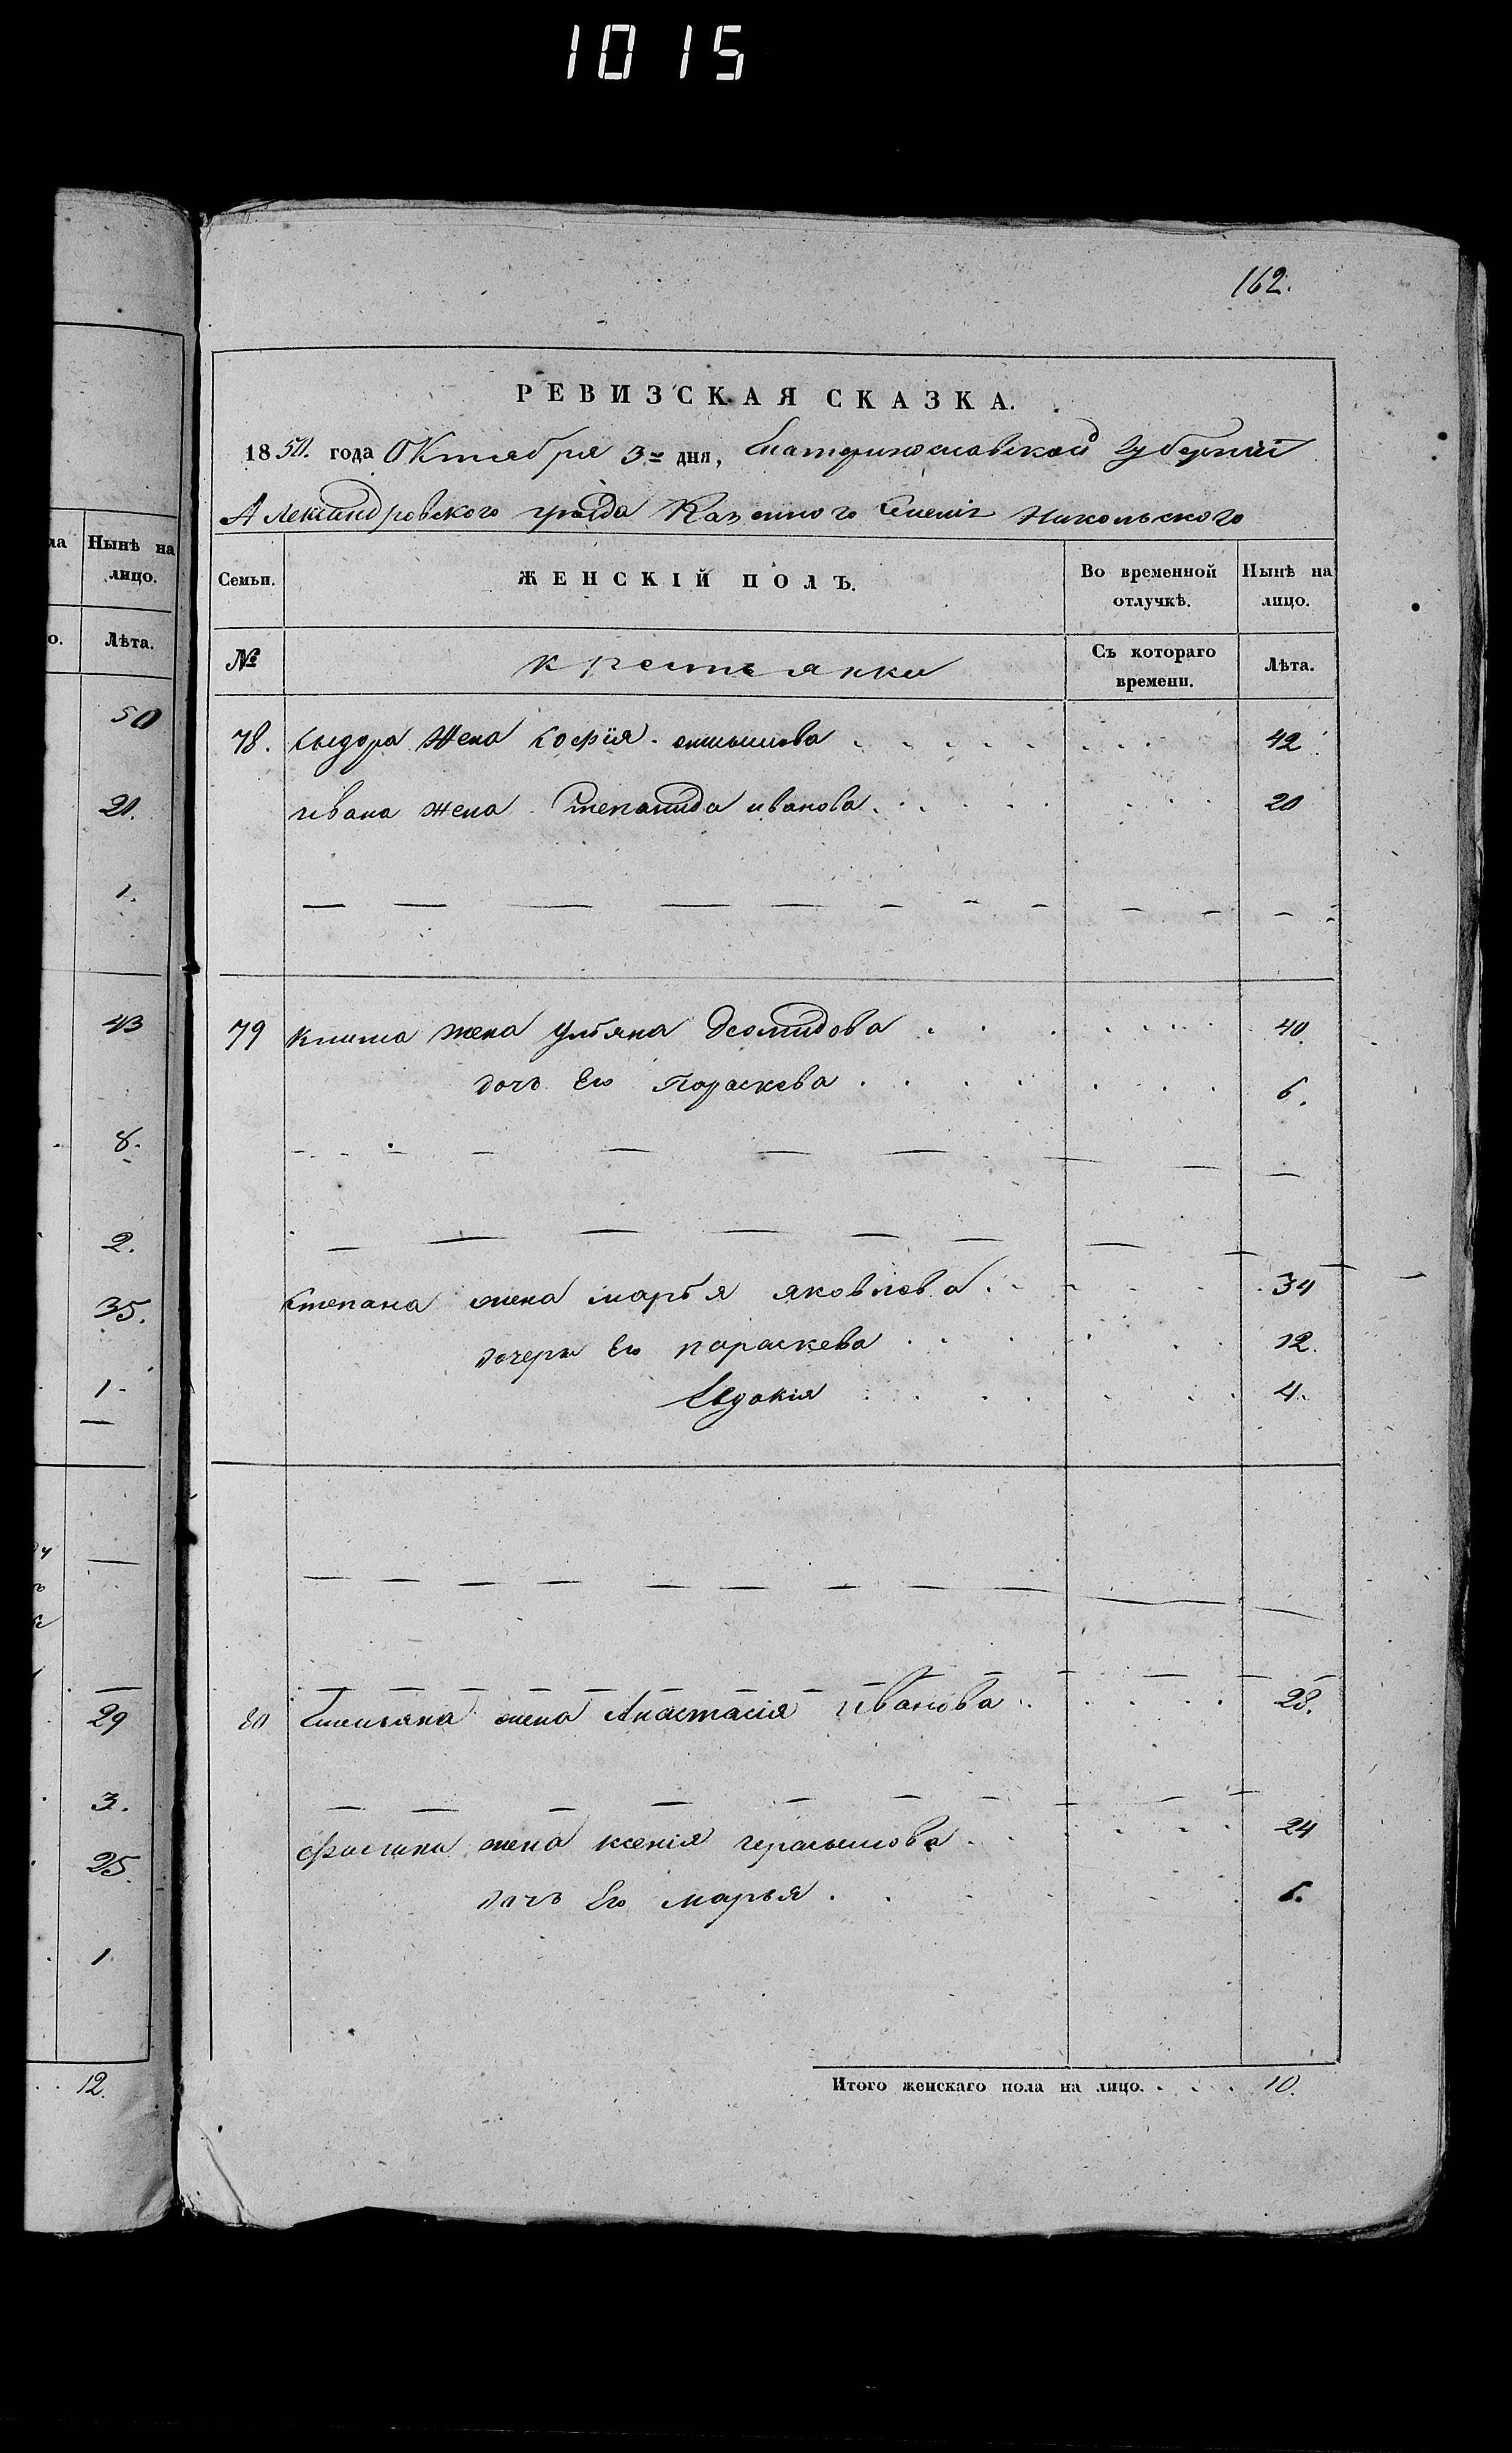 1015
162.
РЕВИЗСКАЯ СКАЗКА.
1850. года Октября 3го дня, Екатеринославской Губерніи
Александровского уезда Казенного Селенія Никольского
Семьи. ЖЕНСКІЙ ПОЛЪ. Во временной отлучкѣ. Нынѣ на лицо.
№ крестьянки Съ котораго времени. Лѣта.
78. Сыдора Жена Софія 42
Ивана жена Степанида иванова 20
79 жена Ульяна Деомидова 40.
дочь Его Параскева 6.
Степана жена марья яковлева 34
дочери Его параскева 12.
Евдокія 4.
80 Емельяна жена Анастасія Иванова 28.
жена ксенія герасимова 24
дочь Его марья 6.
Итого женскаго пола на лицо. 10.
Нынѣ на лицо.
Лѣта.
50
21.
1.
43
8.
2.
35.
1.
29
3.
25.
1
12.